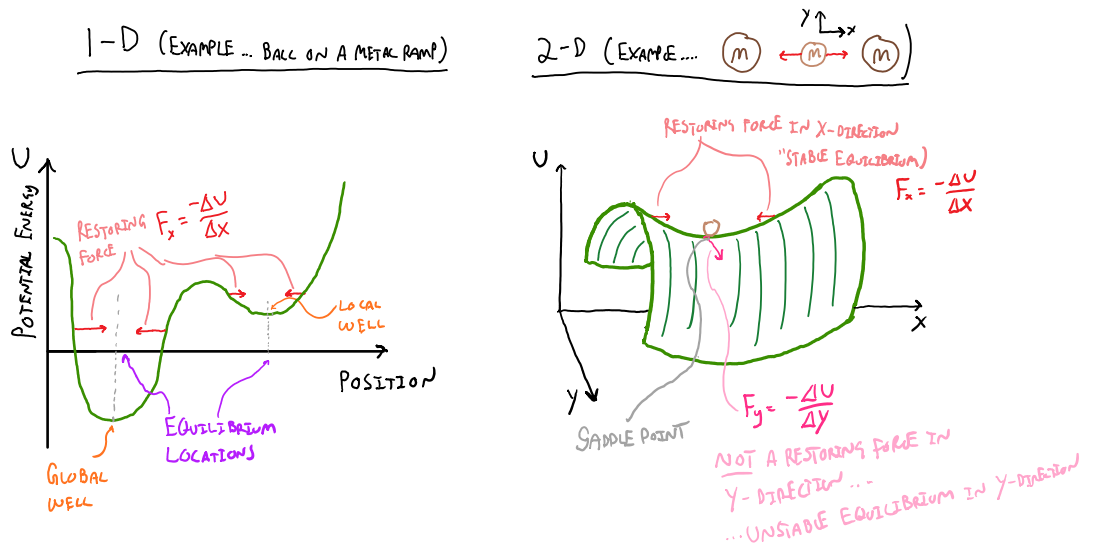 1-D (EXAMPLE... BALL ON A METAL RAMP)
U
POTENTIAL ENERGY
RESTORING
FORCE
Fx = -ΔU/ΔX
LOCAL
WELL
POSITION
EQUILIBRIUM
LOCATIONS
GLOBAL
WELL
2-D (EXAMPLE.... M m M)
Y
X
RESTORING FORCE IN X-DIRECTION
"STABLE EQUILIBRIUM)
U
Fx = -ΔU/ΔX
X
Y
SADDLE POINT
Fy = -ΔU/ΔY
NOT A RESTORING FORCE IN
Y-DIRECTION...
...UNSTABLE EQUILIBRIUM IN Y-DIRECTION